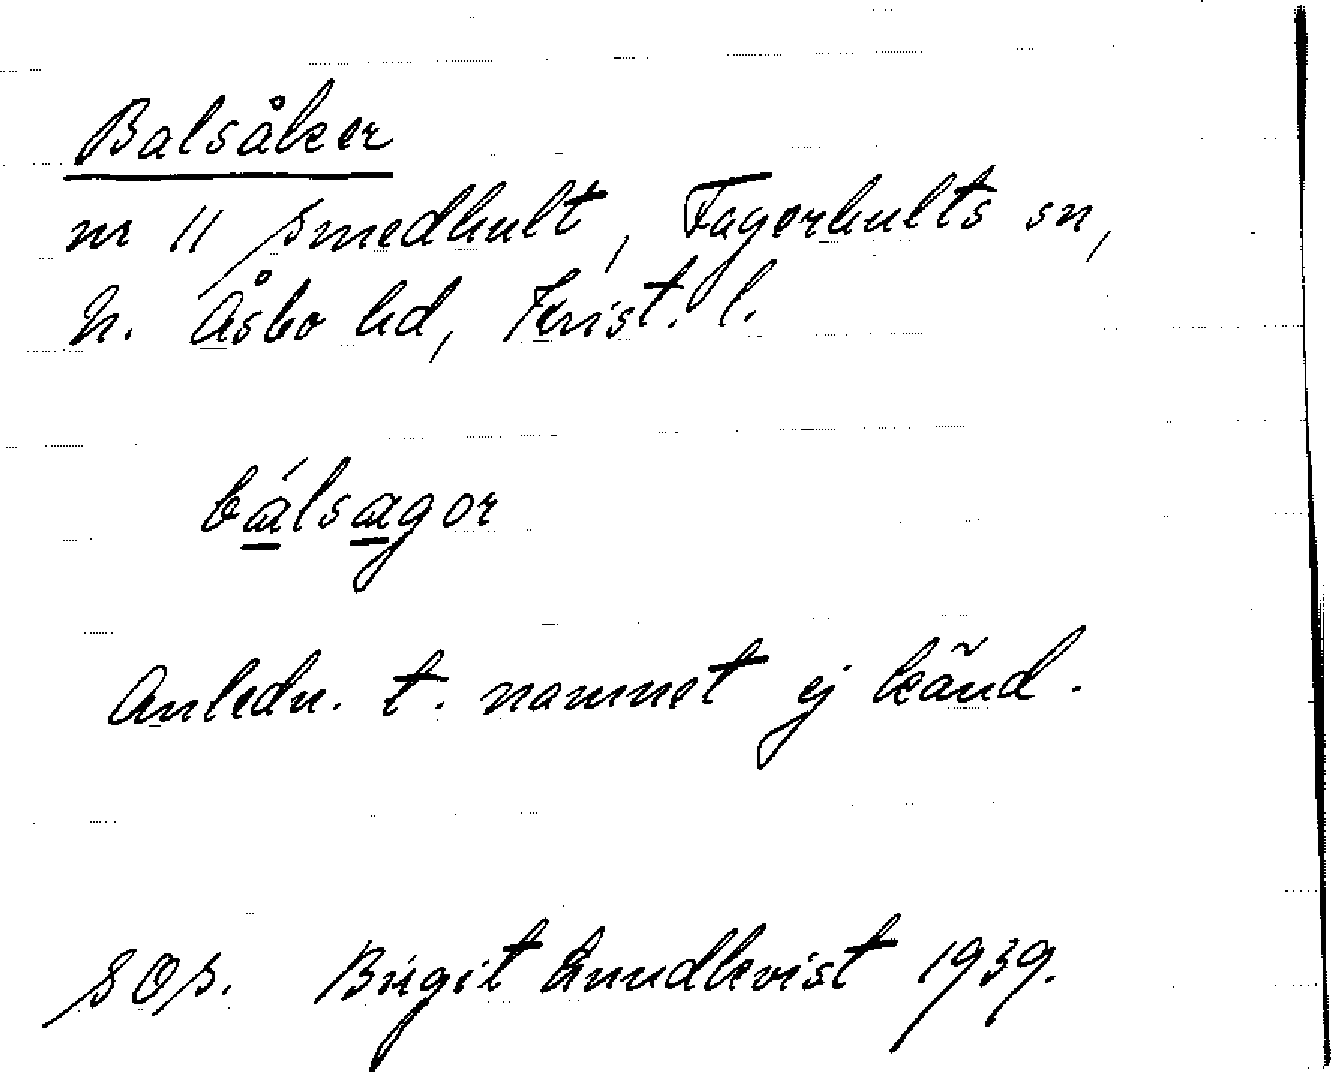 Balsåker
nr 11 Smedhult, Fagerhults sn,
N. Åsbo hd, Krist. l.
bálsagor
Anledn. t. namnet ej känd.
SOS. Birgit Lundkvist 1939.